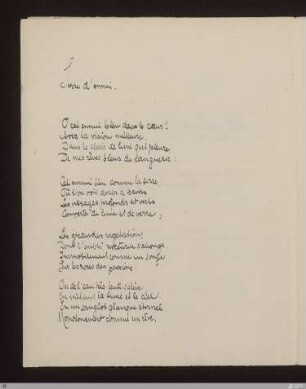 Serre d'ennui.
O cet ennui bleu dans le cœur !
Avec la vision meilleure,
Dans le clair de lune qui pleure,
De mes rêves bleus de langueur !
Cet ennui bleu comme la serre,
Où l'on voit closes à travers
Les vitrages profonds et verts
Couvertes de lune et de verre ;
Les grandes végétations
Dont l'oubli nocturne s'allonge
Immobilement comme un songe
Sur les roses des passions.
Où de l'eau très lente s'élève
En mêlant la lune et le ciel
En un sanglot glauque éternel
Monotonement comme un rêve.